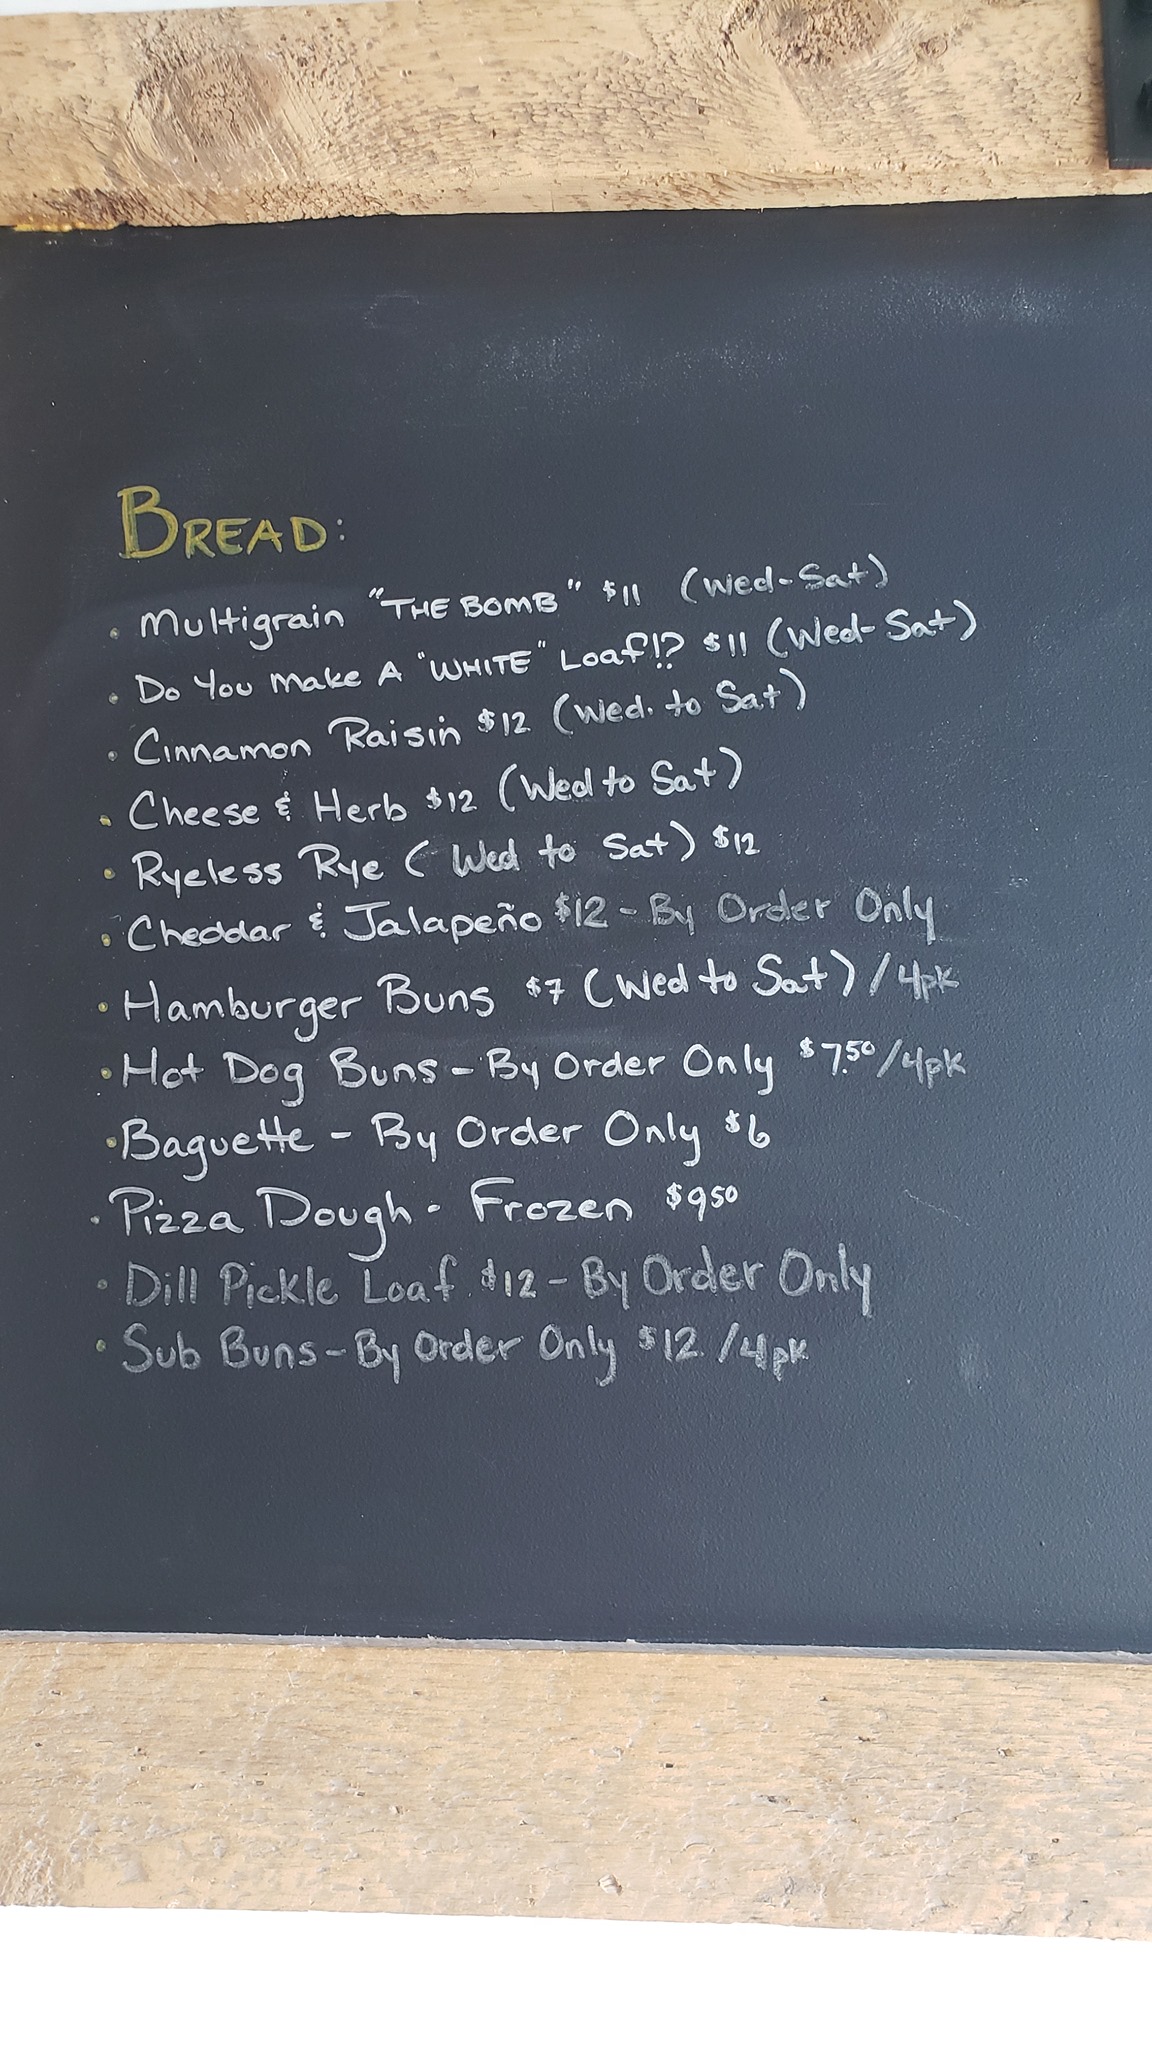 BREAD:
• Multigrain "THE BOMB" $11 (Wed-Sat)
• Do You Make A "WHITE" Loaf!? $11 (Wed-Sat)
• Cinnamon Raisin $12 (Wed. to Sat)
• Cheese & Herb $12 (Wed to Sat)
• Ryeless Rye (Wed to Sat) $12
• Cheddar & Jalapeño $12 - By Order Only
• Hamburger Buns $7 (Wed to Sat) / 4pk
• Hot Dog Buns - By Order Only $7.50/4pk
• Baguette - By Order Only $6
• Pizza Dough - Frozen $950
• Dill Pickle Loaf $12 - By Order Only
• Sub Buns - By Order Only $12 /4pk